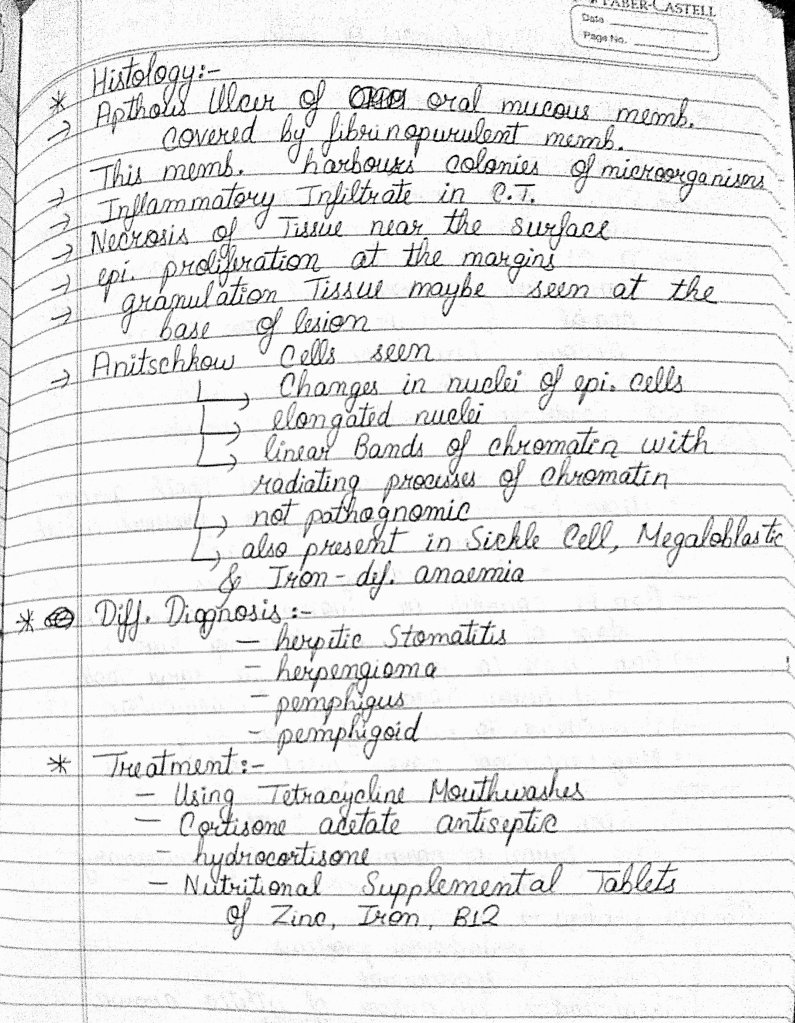 FABER-CASTELL
Date
Page No.
* Histology:-
→ Apthous Ulcer of oral mucous memb.
covered by fibrinopurulent memb.
→ This memb. harbours colonies of microorganisms
→ Inflammatory Infiltrate in C.T.
→ Necrosis of Tissue near the surface
→ epi. proliferation at the margins
→ granulation Tissue maybe seen at the
base of lesion
→ Anitschkow Cells seen
↳ Changes in nuclei of epi. cells
↳ elongated nuclei
↳ linear Bands of chromatin with
radiating processes of chromatin
↳ not pathognomic
↳ also present in Sickle Cell, Megaloblastic
& Iron-def. anaemia
* Diff. Diagnosis :-
- herpitic Stomatitis
- herpengioma
- pemphigus
- pemphigoid
* Treatment:-
- Using Tetracycline Mouthwashes
- Cortisone acetate antiseptic
- hydrocortisone
- Nutritional Supplemental Tablets
of Zinc, Iron, B12